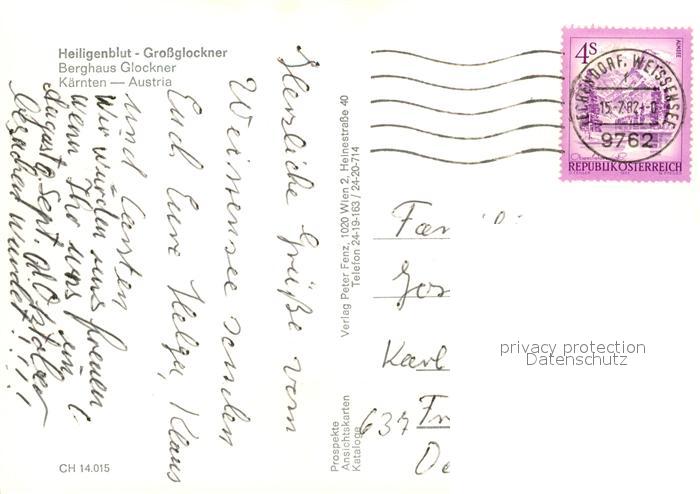 Heiligenblut - Großglockner
Berghaus Glockner
Kärnten — Austria
Herzliche Grüße vom
Weissensee senden
Euch Eure Helga, Klaus
und Carsten
Wir würden uns freuen
wenn Ihr uns im
August, Sept. od. Oktober
besuchen würdet!!!!
CH 14.015
Verlag Peter Fenz, 1020 Wien 2, Heinestraße 40
Telefon 24-19-163 / 24-20-714
Prospekte
Ansichtskarten
Kataloge
4S
ALMSEE
TECHENDORF, WEISSENSEE
9762
REPUBLIK ÖSTERREICH
Fam
Gos
Karl
637 Fr
De
privacy protection
Datenschutz